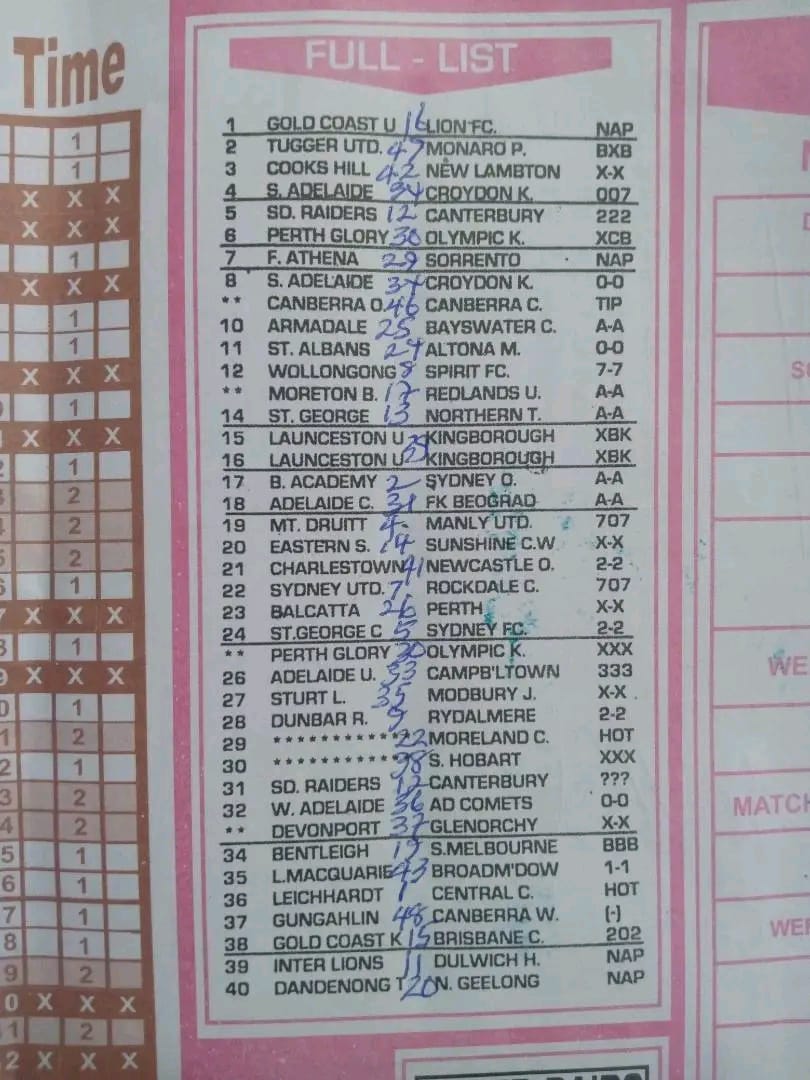 Time
FULL - LIST
1 GOLD COAST U 16 LION FC. NAP
2 TUGGER UTD. 47 MONARO P. BXB
3 COOKS HILL 42 NEW LAMBTON X-X
4 S. ADELAIDE 34 CROYDON K. 007
5 SD. RAIDERS 12 CANTERBURY 222
6 PERTH GLORY 30 OLYMPIC K. XCB
7 F. ATHENA 29 SORRENTO NAP
8 S. ADELAIDE 34 CROYDON K. 0-0
** CANBERRA O. 46 CANBERRA C. TIP
10 ARMADALE 25 BAYSWATER C. A-A
11 ST. ALBANS 24 ALTONA M. 0-0
12 WOLLONGONG 8 SPIRIT FC. 7-7
** MORETON B. 17 REDLANDS U. A-A
14 ST. GEORGE 13 NORTHERN T. A-A
15 LAUNCESTON U KINGBOROUGH XBK
16 LAUNCESTON U KINGBOROUGH XBK
17 B. ACADEMY 2 SYDNEY O. A-A
18 ADELAIDE C. 31 FK BEOGRAD A-A
19 MT. DRUITT 4 MANLY UTD. 707
20 EASTERN S. 14 SUNSHINE C.W X-X
21 CHARLESTOWN 41 NEWCASTLE O. 2-2
22 SYDNEY UTD. 7 ROCKDALE C. 707
23 BALCATTA 26 PERTH X-X
24 ST.GEORGE C 5 SYDNEY FC. 2-2
** PERTH GLORY 30 OLYMPIC K. XXX
26 ADELAIDE U. 33 CAMPB'LTOWN 333
27 STURT L. 35 MODBURY J. X-X
28 DUNBAR R. 9 RYDALMERE 2-2
29 *********** 22 MORELAND C. HOT
30 *********** 38 S. HOBART XXX
31 SD. RAIDERS 12 CANTERBURY ???
32 W. ADELAIDE 36 AD COMETS 0-0
** DEVONPORT 37 GLENORCHY X-X
34 BENTLEIGH 19 S.MELBOURNE BBB
35 L.MACQUARIE 43 BROADM'DOW 1-1
36 LEICHHARDT 1 CENTRAL C. HOT
37 GUNGAHLIN 48 CANBERRA W. (-)
38 GOLD COAST K 15 BRISBANE C. 202
39 INTER LIONS 11 DULWICH H. NAP
40 DANDENONG T 20 N. GEELONG NAP
WE
MATCH
WE